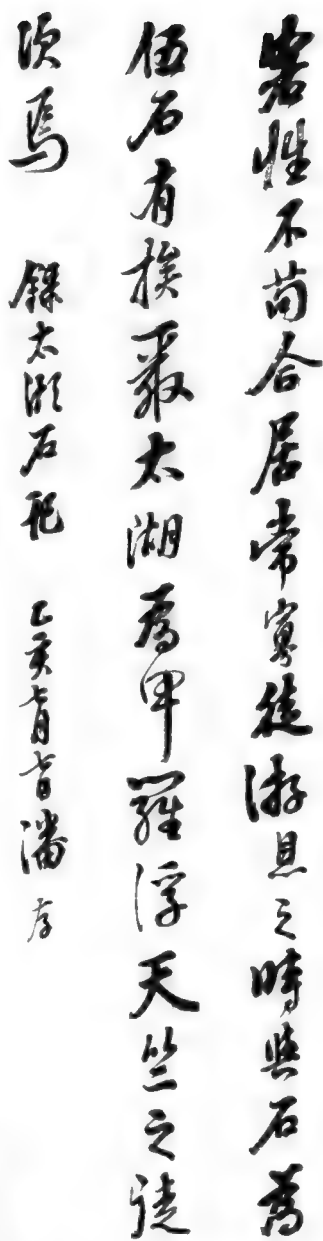 客性不苟合居常寡徒游息之時與石為
伍石有族聚太湖為甲羅浮天竺之徒
次焉 錄太湖石記 乙亥七月七日潘存